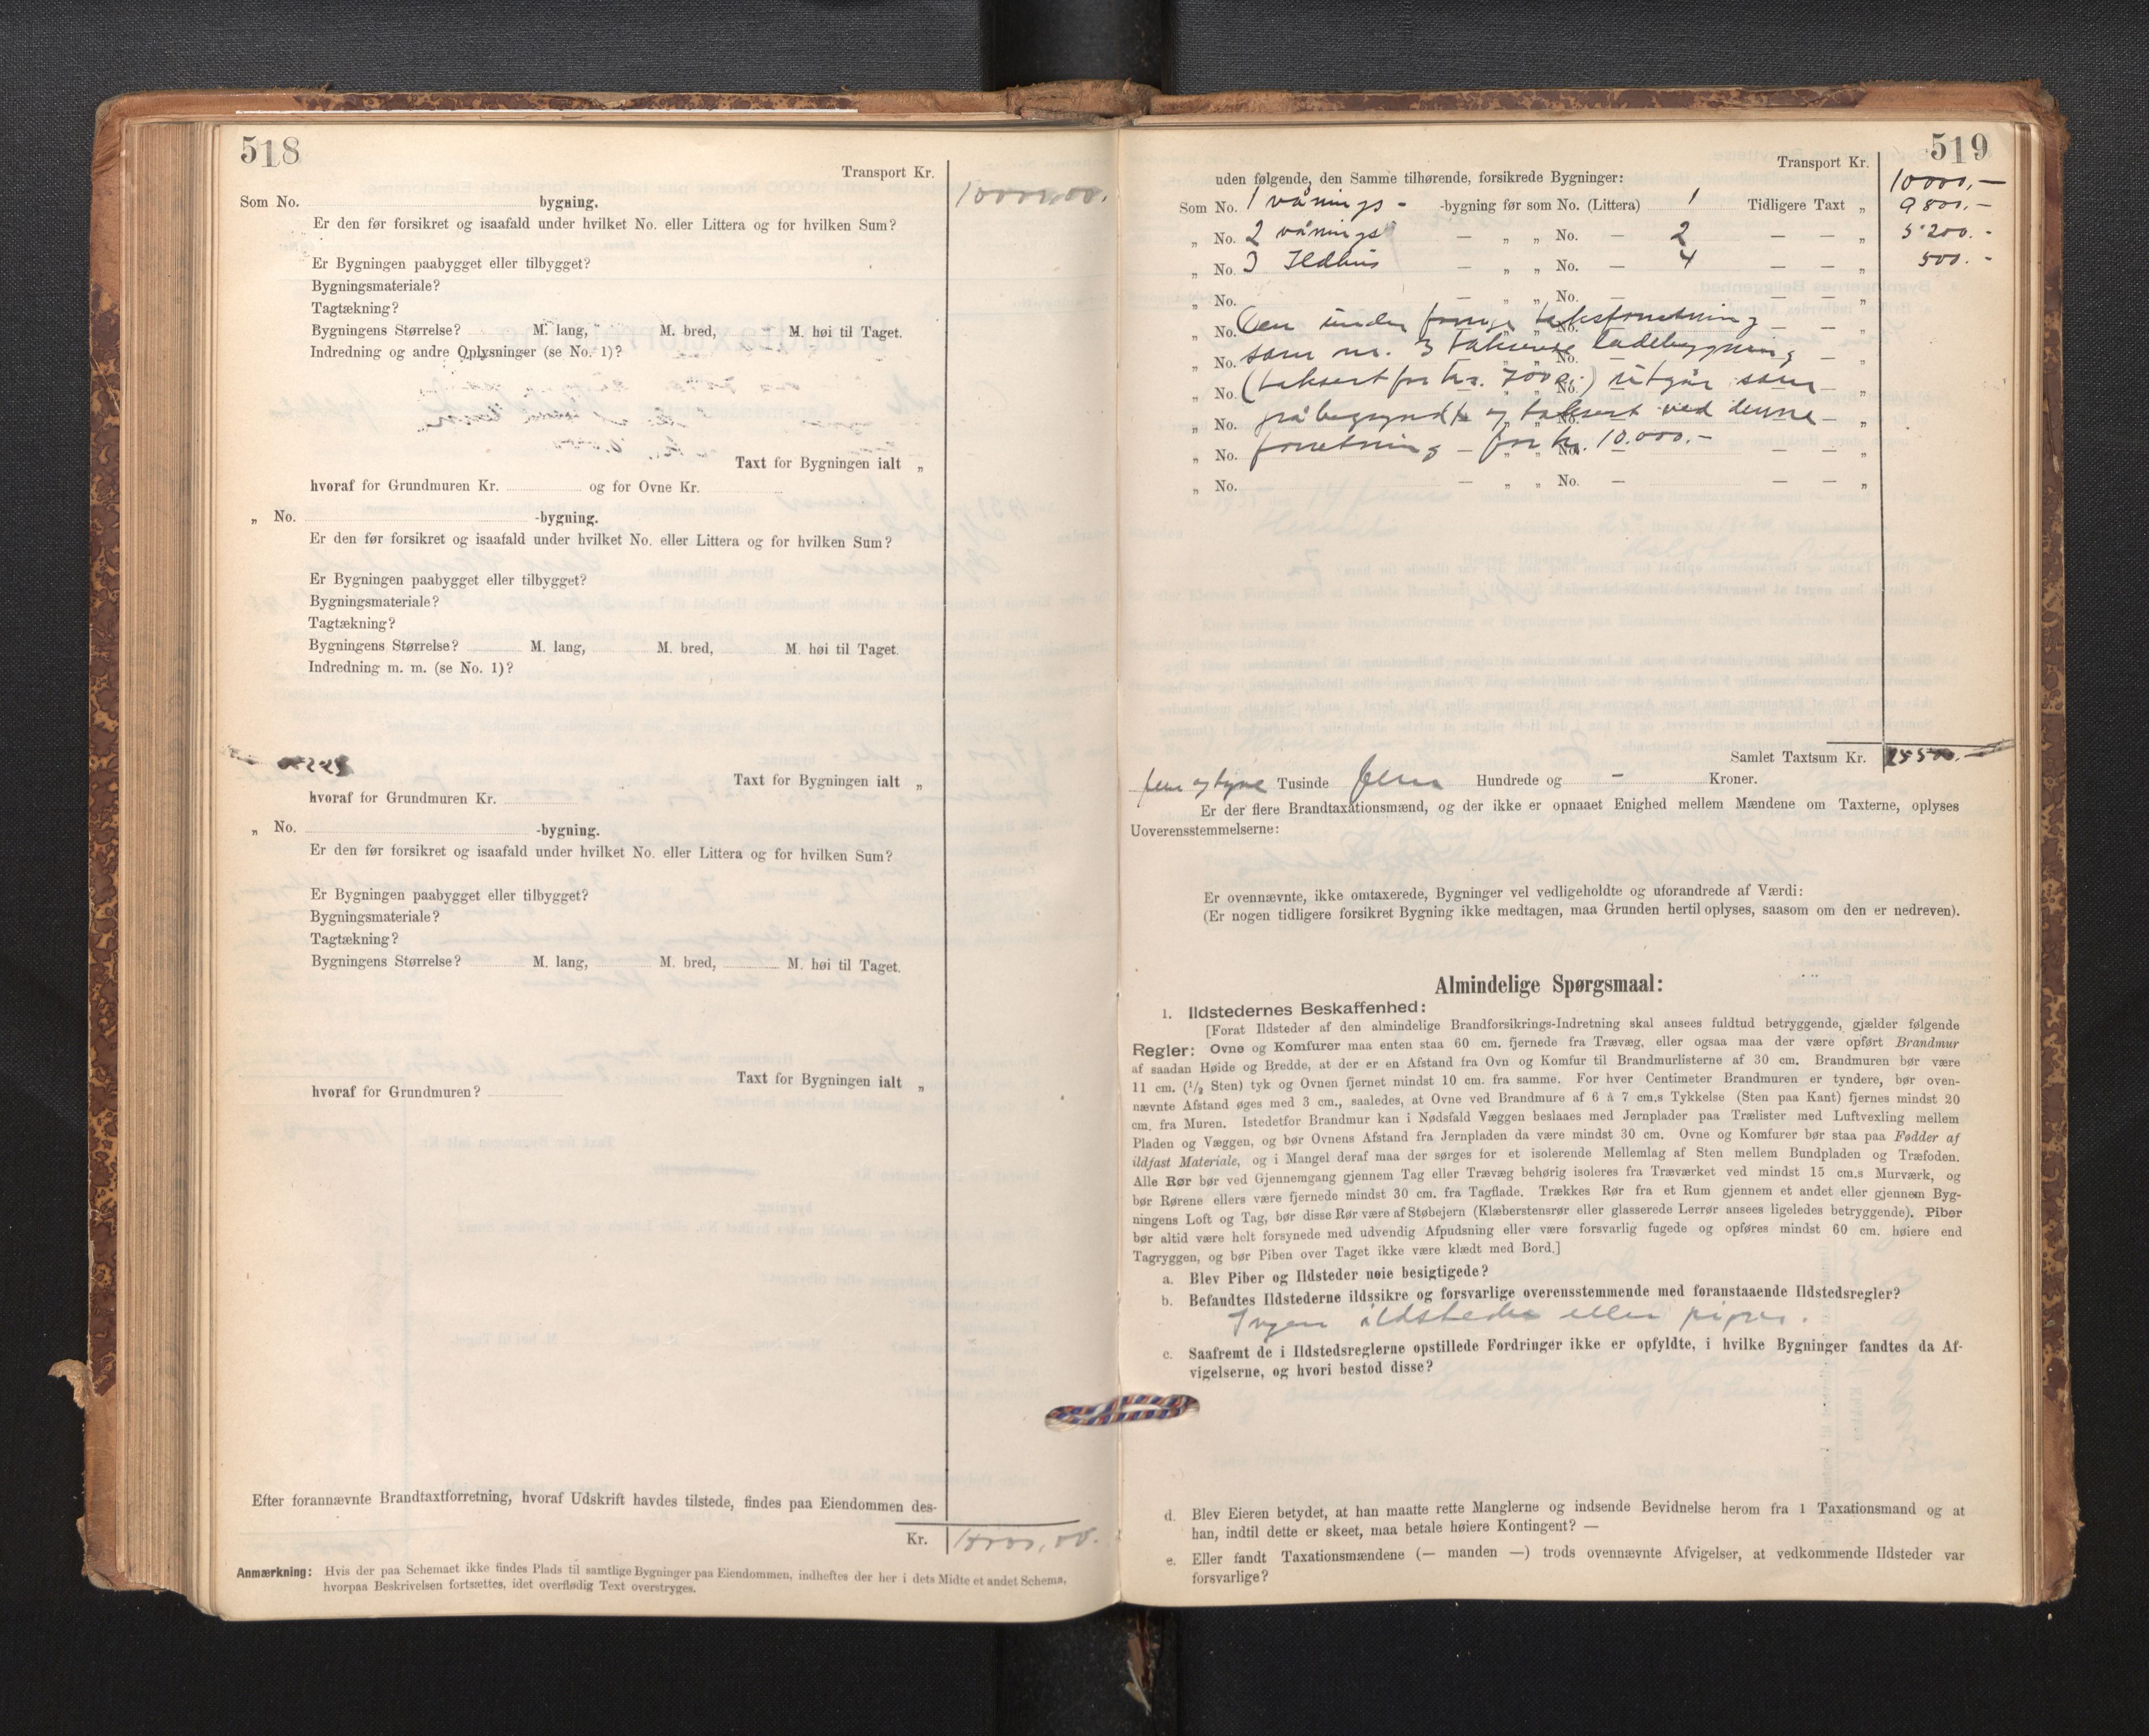 518
Transport Kr.
10000,00.
Som No. bygning.
Er den før forsikret og isaafald under hvilket No. eller Littera og for hvilken Sum?
Er Bygningen paabygget eller tilbygget?
Bygningsmateriale?
Tagtækning?
Bygningens Størrelse? M. lang, M. bred, M. høi til Taget.
Indredning og andre Oplysninger (se No. 1)?
Taxt for Bygningen ialt „
hvoraf for Grundmuren Kr. og for Ovne Kr.
„ No. -bygning.
Er den før forsikret og isaafald under hvilket No. eller Littera og for hvilken Sum?
Er Bygningen paabygget eller tilbygget?
Bygningsmateriale?
Tagtækning?
Bygningens Størrelse? M. lang, M. bred, M. høi til Taget.
Indredning m. m. (se No. 1)?
Taxt for Bygningen ialt „
hvoraf for Grundmuren Kr.
„ No. -bygning.
Er den før forsikret og isaafald under hvilket No. eller Littera og for hvilken Sum?
Er Bygningen paabygget eller tilbygget?
Bygningsmateriale?
Tagtækning?
Bygningens Størrelse? M. lang, M. bred, M. høi til Taget.
Taxt for Bygningen ialt „
hvoraf for Grundmuren?
Efter forannævnte Brandtaxtforretning, hvoraf Udskrift havdes tilstede, findes paa Eiendommen des-
Kr. 10000,00.
Anmærkning: Hvis der paa Schemaet ikke findes Plads til samtlige Bygninger paa Eiendommen, indheftes der her i dets Midte et andet Schema,
hvorpaa Beskrivelsen fortsættes, idet overflødig Text overstryges.
519
Transport Kr. 10000,—
uden følgende, den Samme tilhørende, forsikrede Bygninger:
Som No. 1 vånings- -bygning før som No. (Littera) 1 Tidligere Taxt „ 9800.—
„ No. 2 vånings — „ „ No. — 2 — — „ 5200.-
„ No. 3 Ildhus — „ „ No. — 4 — — „ 500.-
„ No. — „ „ No. — — — „
„ No. Den under forrige takstforretning
„ No. som nr. 3 takserte ladebygning
„ No. (taksert for kr. 7000.-) utgår som
„ No. påbegyndt og taksert ved denne
„ No. forretning for kr. 10.000.-
„ No. — „ „ No. — — — „
Samlet Taxtsum Kr. 25500.—
fem og tyve Tusinde fem Hundrede og — Kroner.
Er der flere Brandtaxationsmænd, og der ikke er opnaaet Enighed mellem Mændene om Taxterne, oplyses
Uoverensstemmelserne:
Er ovennævnte, ikke omtaxerede, Bygninger vel vedligeholdte og uforandrede af Værdi:
(Er nogen tidligere forsikret Bygning ikke medtagen, maa Grunden hertil oplyses, saasom om den er nedreven).
Almindelige Spørgsmaal:
1. Ildstedernes Beskaffenhed:
[Forat Ildsteder af den almindelige Brandforsikrings-Indretning skal ansees fuldtud betryggende, gjælder følgende
Regler: Ovne og Komfurer maa enten staa 60 cm. fjernede fra Trævæg, eller ogsaa maa der være opført Brandmur
af saadan Høide og Bredde, at der er en Afstand fra Ovn og Komfur til Brandmurlisterne af 30 cm. Brandmuren bør være
11 cm. (1/2 Sten) tyk og Ovnen fjernet mindst 10 cm. fra samme. For hver Centimeter Brandmuren er tyndere, bør oven-
nævnte Afstand øges med 3 cm., saaledes, at Ovne ved Brandmure af 6 à 7 cm.s Tykkelse (Sten paa Kant) fjernes mindst 20
cm. fra Muren. Istedetfor Brandmur kan i Nødsfald Væggen beslaaes med Jernplader paa Trælister med Luftvexling mellem
Pladen og Væggen, og bør Ovnens Afstand fra Jernpladen da være mindst 30 cm. Ovne og Komfurer bør staa paa Fødder af
ildfast Materiale, og i Mangel deraf maa der sørges for et isolerende Mellemlag af Sten mellem Bundpladen og Træfoden.
Alle Rør bør ved Gjennemgang gjennem Tag eller Trævæg behørig isoleres fra Træværket ved mindst 15 cm.s Murværk, og
bør Rørene ellers være fjernede mindst 30 cm. fra Tagflade. Trækkes Rør fra et Rum gjennem et andet eller gjennem Byg-
ningens Loft og Tag, bør disse Rør være af Støbejern (Klæberstensrør eller glasserede Lerrør ansees ligeledes betryggende). Piber
bør altid være helt forsynede med udvendig Afpudsning eller være forsvarlig fugede og opføres mindst 60 cm. høiere end
Tagryggen, og bør Piben over Taget ikke være klædt med Bord.]
a. Blev Piber og Ildsteder nøie besigtigede?
b. Befandtes Ildstederne ildssikre og forsvarlige overensstemmende med foranstaaende Ildstedsregler?
Ingen ildsteder eller piper.
c. Saafremt de i Ildstedsreglerne opstillede Fordringer ikke er opfyldte, i hvilke Bygninger fandtes da Af-
vigelserne, og hvori bestod disse?
d. Blev Eieren betydet, at han maatte rette Manglerne og indsende Bevidnelse herom fra 1 Taxationsmand og at
han, indtil dette er skeet, maa betale høiere Kontingent? —
e. Eller fandt Taxationsmændene (— manden —) trods ovennævnte Afvigelser, at vedkommende Ildsteder var
forsvarlige?